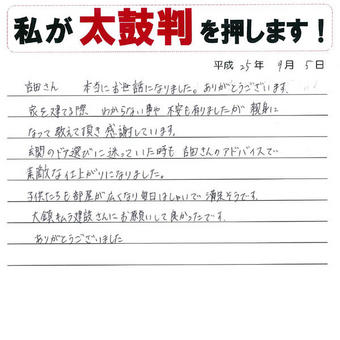 私が太鼓判を押します！
平成 25年 9月 5日
吉田さん 本当にお世話になりました。ありがとうございます。
家を建てる際 わからない事や 不安も有りましたが 親身に
なって教えて頂き 感謝しています。
玄関のドア選びに迷っていた時も 吉田さんのアドバイスで
素敵な仕上がりになりました。
子供たちも部屋が広くなり毎日はしゃいで 満足そうです。
建設さんにお願いして良かったです。
ありがとうございました